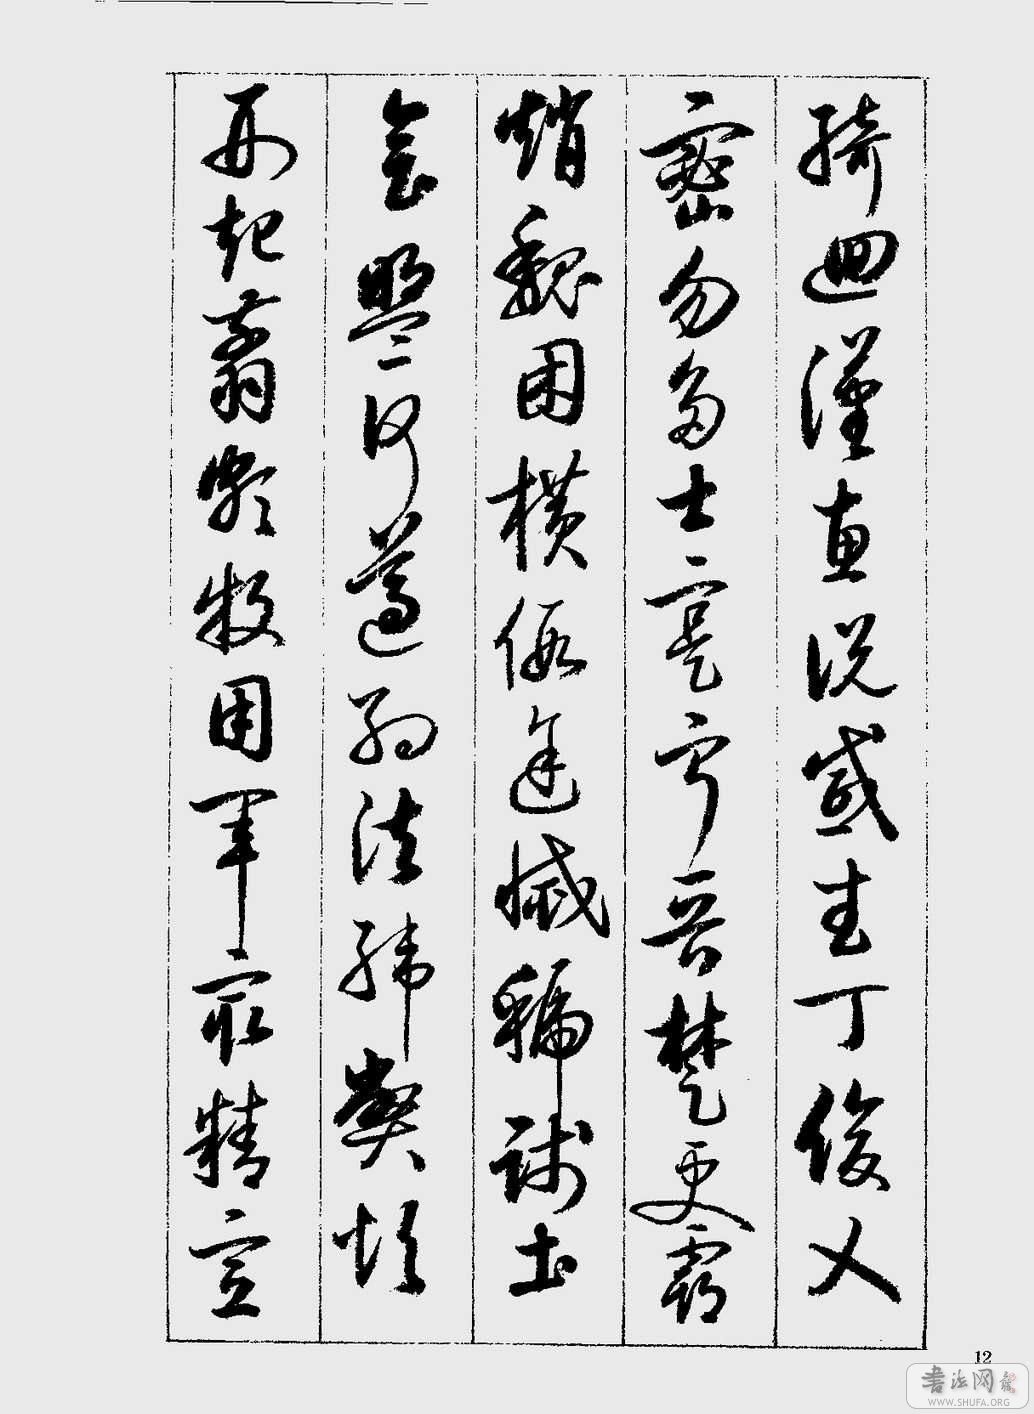 綺迴漢惠說感武丁俊乂
密勿多士寔寧晉楚更霸
趙魏困橫假途滅虢踐土
會盟何遵約法韓弊煩
刑起翦頗牧用軍最精宣
12
書法网
WWW.SHUFA.ORG